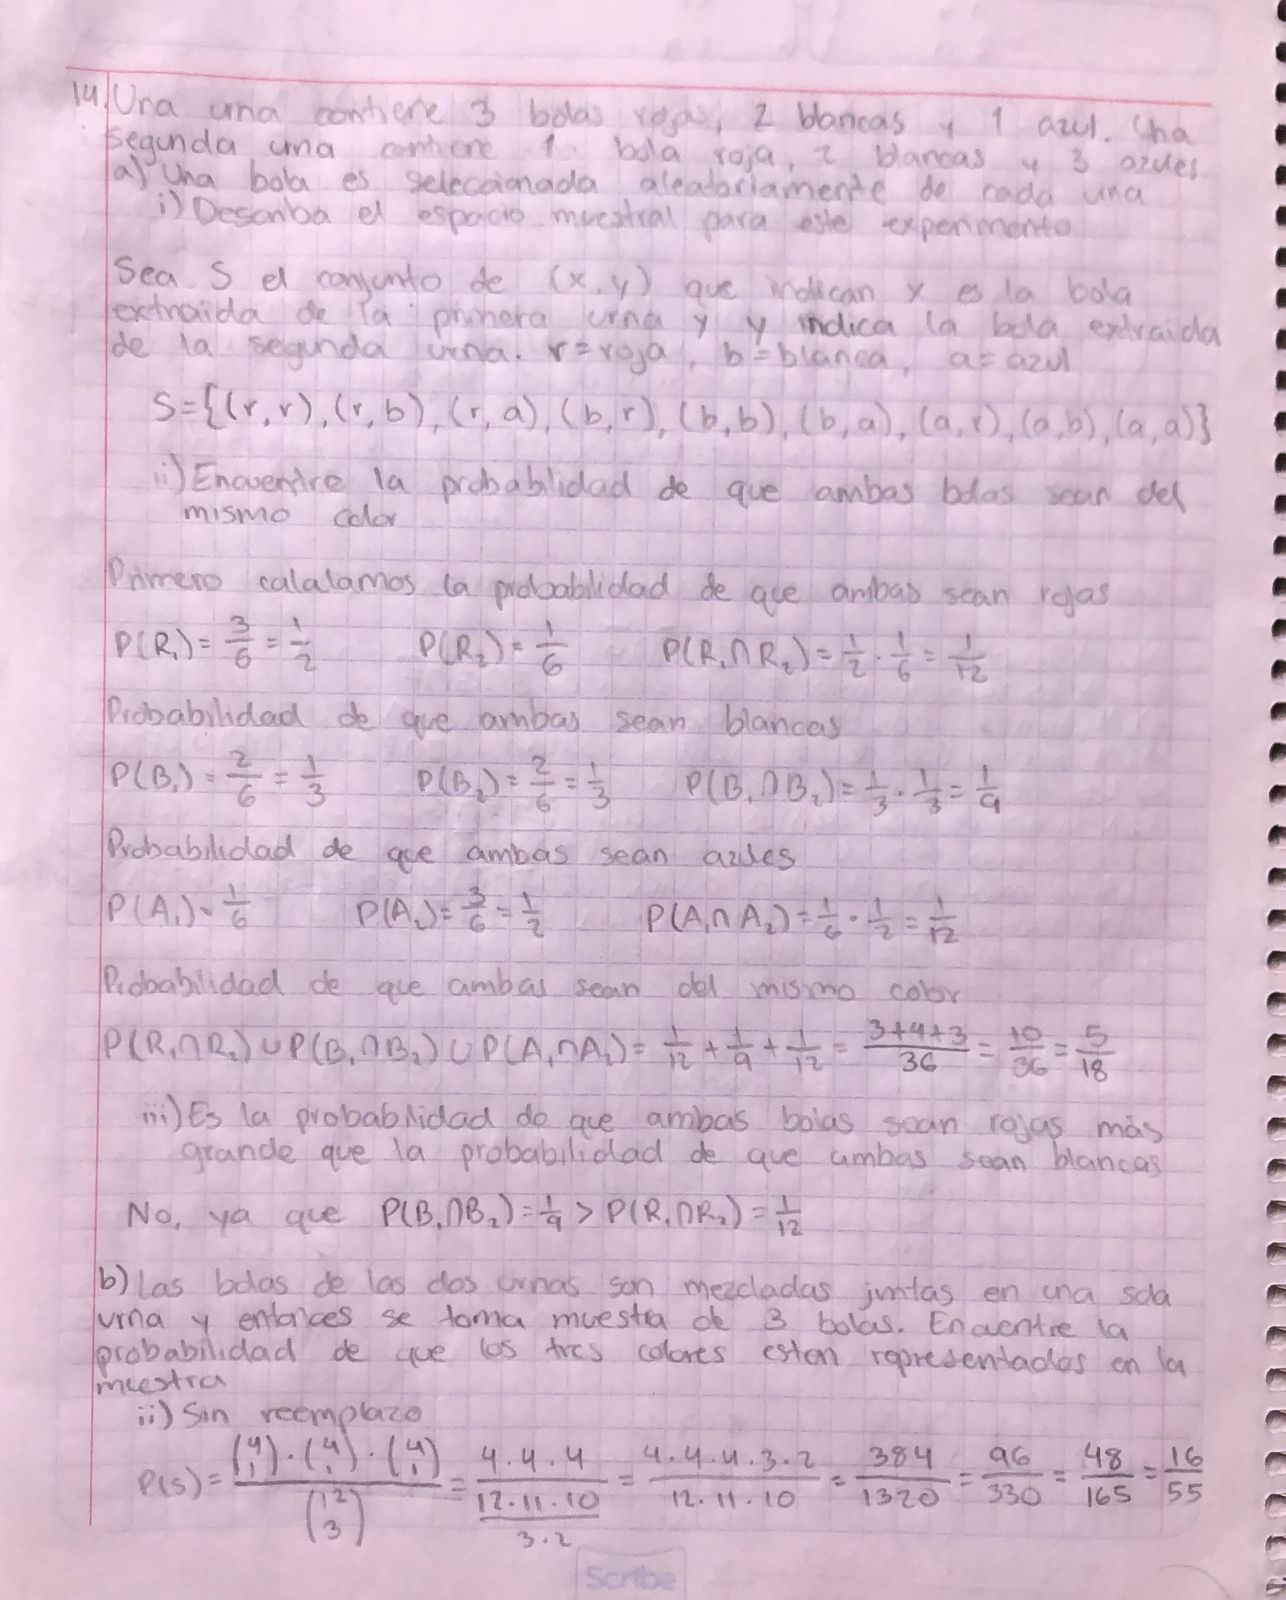 14. Una urna contiene 3 bolas rojas, 2 blancas y 1 azul. Una
segunda urna contiene 1 bola roja, 2 blancas y 3 azules.
a) Una bola es seleccionada aleatoriamente de cada urna
i) Describa el espacio muestral para este experimento
Sea S el conjunto de (x,y) que indican x es la bola
extraida de la primera urna y y indica la bola extraida
de la segunda urna. r=roja, b=blanca, a=azul
S={(r,r),(r,b),(r,a),(b,r),(b,b),(b,a),(a,r),(a,b),(a,a)}
ii) Encuentre la probabilidad de que ambas bolas sean del
mismo color
Primero calculamos la probabilidad de que ambas sean rojas
P(R₁)=3/6=1/2 P(R₂)=1/6 P(R₁∩R₂)=1/2·1/6=1/12
Probabilidad de que ambas sean blancas
P(B₁)=2/6=1/3 P(B₂)=2/6=1/3 P(B₁∩B₂)=1/3·1/3=1/9
Probabilidad de que ambas sean azules
P(A₁)=1/6 P(A₂)=3/6=1/2 P(A₁∩A₂)=1/6·1/2=1/12
Probabilidad de que ambas sean del mismo color
P(R₁∩R₂)∪P(B₁∩B₂)∪P(A₁∩A₂)=1/12+1/9+1/12=(3+4+3)/36=10/36=5/18
iii) Es la probabilidad de que ambas bolas sean rojas más
grande que la probabilidad de que ambas sean blancas
No, ya que P(B₁∩B₂)=1/9>P(R₁∩R₂)=1/12
b) Las bolas de las dos urnas son mezcladas juntas en una sola
urna y entonces se toma muestra de 3 bolas. Encuentre la
probabilidad de que los tres colores esten representados en la
muestra
ii) Sin reemplazo
P(S)=((4 1)·(4 1)·(4 1))/(12 3)=(4·4·4)/((12·11·10)/(3·2))=(4·4·4·3·2)/(12·11·10)=384/1320=96/330=48/165=16/55
Scribe